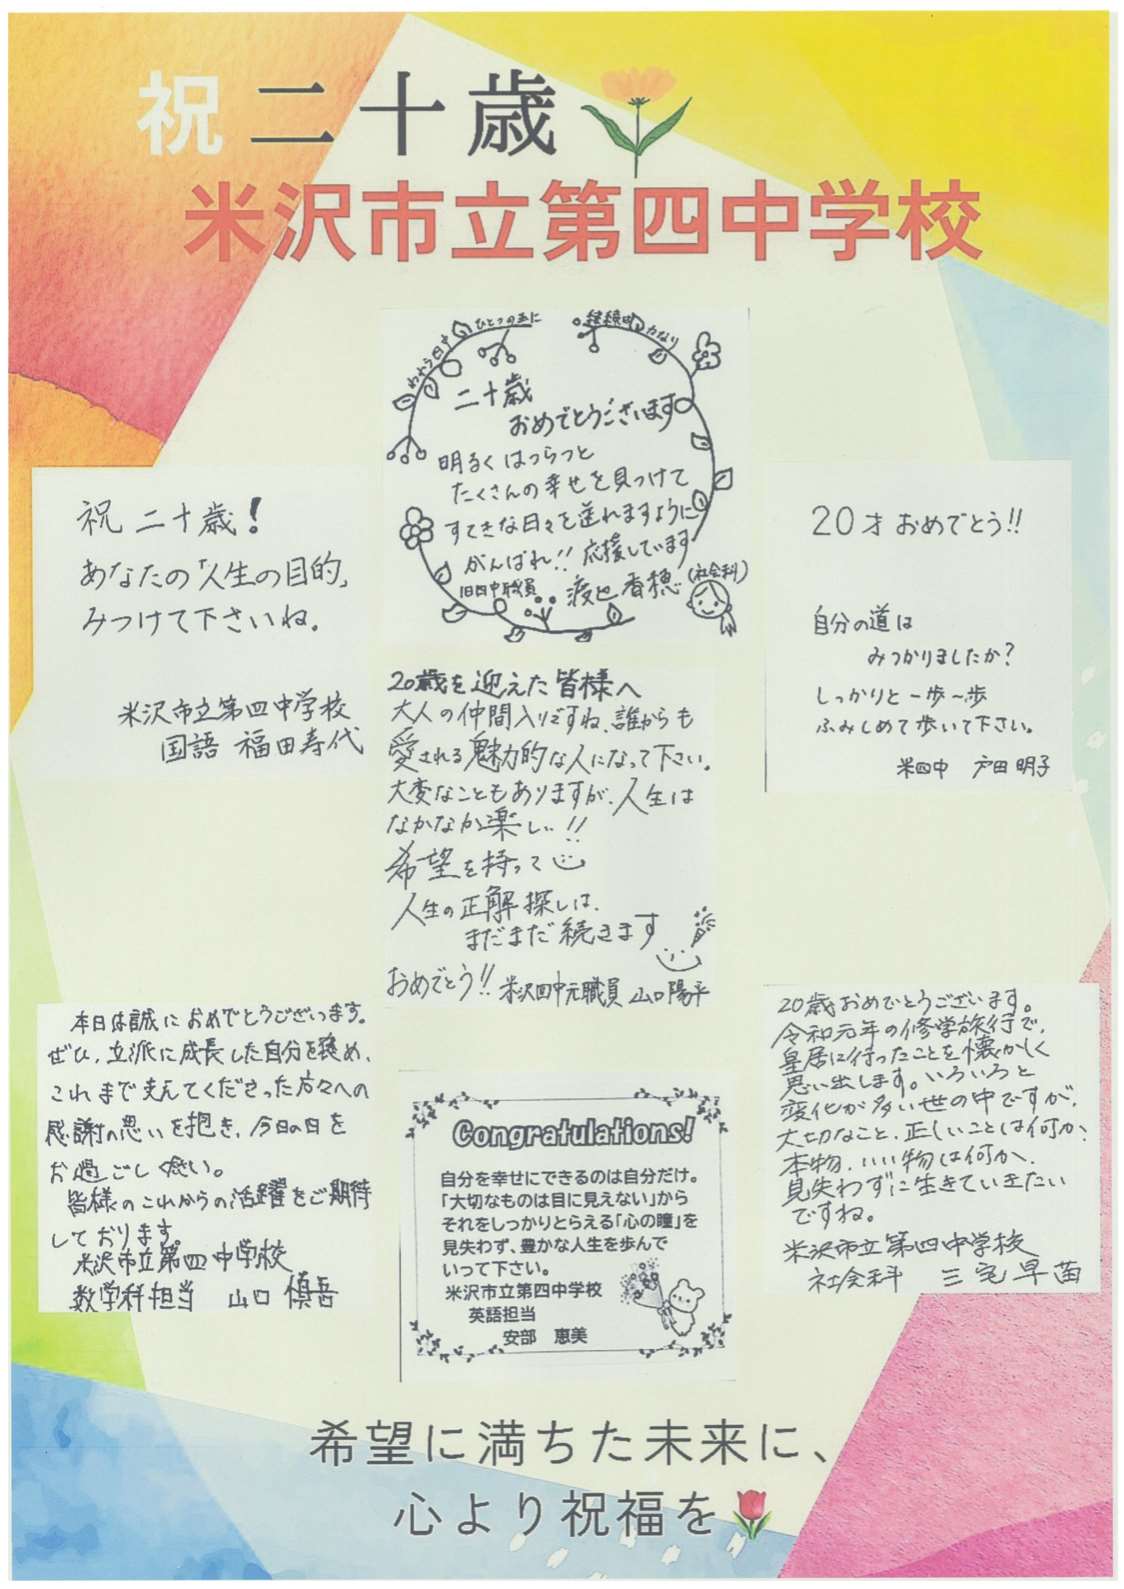 祝二十歳
米沢市立第四中学校
われら四中
ひとつの玉に
継続は力なり
二十歳
おめでとうございます
明るくはつらつと
たくさんの幸せを見つけて
すてきな日々を送れますように
がんばれ!! 応援しています
旧四中職員 渡辺 香穂(社会科)
祝 二十歳!
あなたの「人生の目的」
みつけて下さいね。
米沢市立第四中学校
国語 福田寿代
20才おめでとう!!
自分の道は
みつかりましたか?
しっかりと一歩一歩
ふみしめて歩いて下さい。
米四中 戸田 明子
20歳を迎えた皆様へ
大人の仲間入りですね。誰からも
愛される魅力的な人になって下さい。
大変なこともありますが、人生は
なかなか楽しい!!
希望を持って
人生の正解探しは、
まだまだ続きます
おめでとう!! 米沢四中元職員 山口陽平
本日は誠におめでとうございます。
ぜひ、立派に成長した自分を褒め、
これまで支えてくださった方々への
感謝の思いを抱き、今日の日を
お過ごし下さい。
皆様のこれからの活躍をご期待
しております。
米沢市立第四中学校
数学科担当 山口 慎吾
Congratulations!
自分を幸せにできるのは自分だけ。
「大切なものは目に見えない」から
それをしっかりとらえる「心の瞳」を
見失わず、豊かな人生を歩んで
いって下さい。
米沢市立第四中学校
英語担当
安部 恵美
20歳おめでとうございます。
令和元年の修学旅行で、
皇居に行ったことを懐かしく
思い出します。いろいろと
変化が多い世の中ですが、
大切なこと、正しいことは何か、
本物、いい物は何か、
見失わずに生きていきたい
ですね。
米沢市立第四中学校
社会科 三宅早苗
希望に満ちた未来に、
心より祝福を